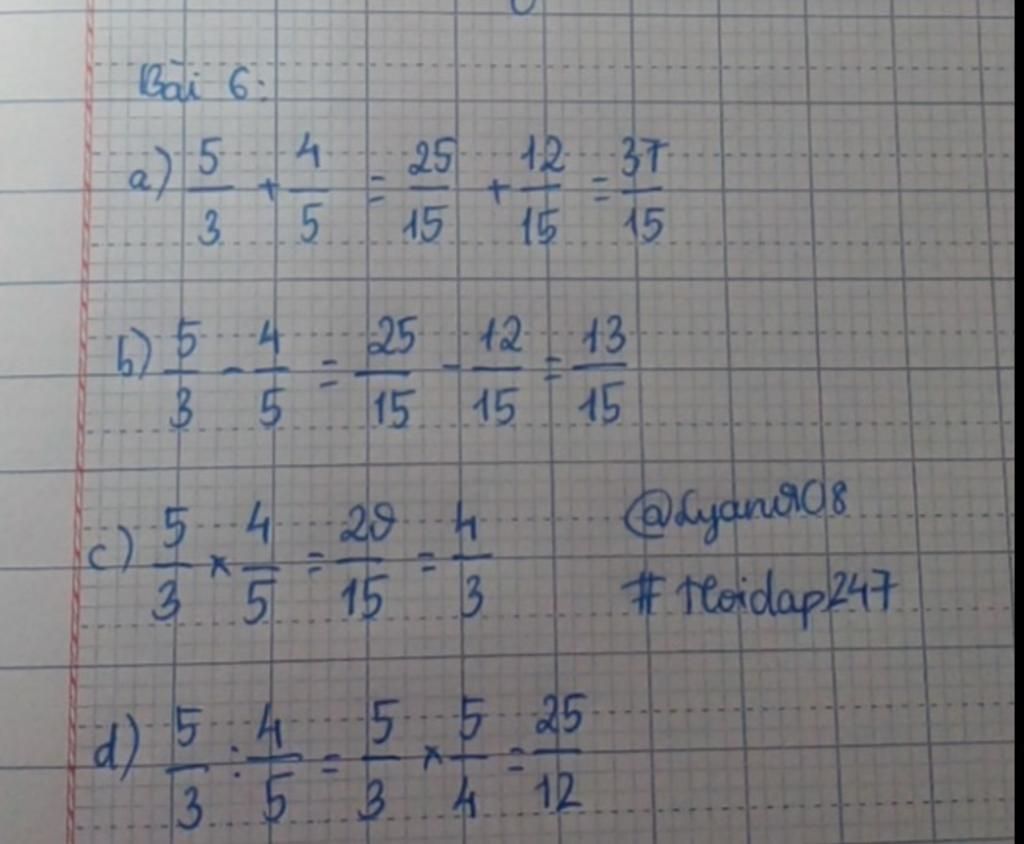 Bài 6:
a) 5/3 + 4/5 = 25/15 + 12/15 = 37/15
b) 5/3 - 4/5 = 25/15 - 12/15 = 13/15
c) 5/3 × 4/5 = 20/15 = 4/3
#Hoidap247
d) 5/3 : 4/5 = 5/3 × 5/4 = 25/12